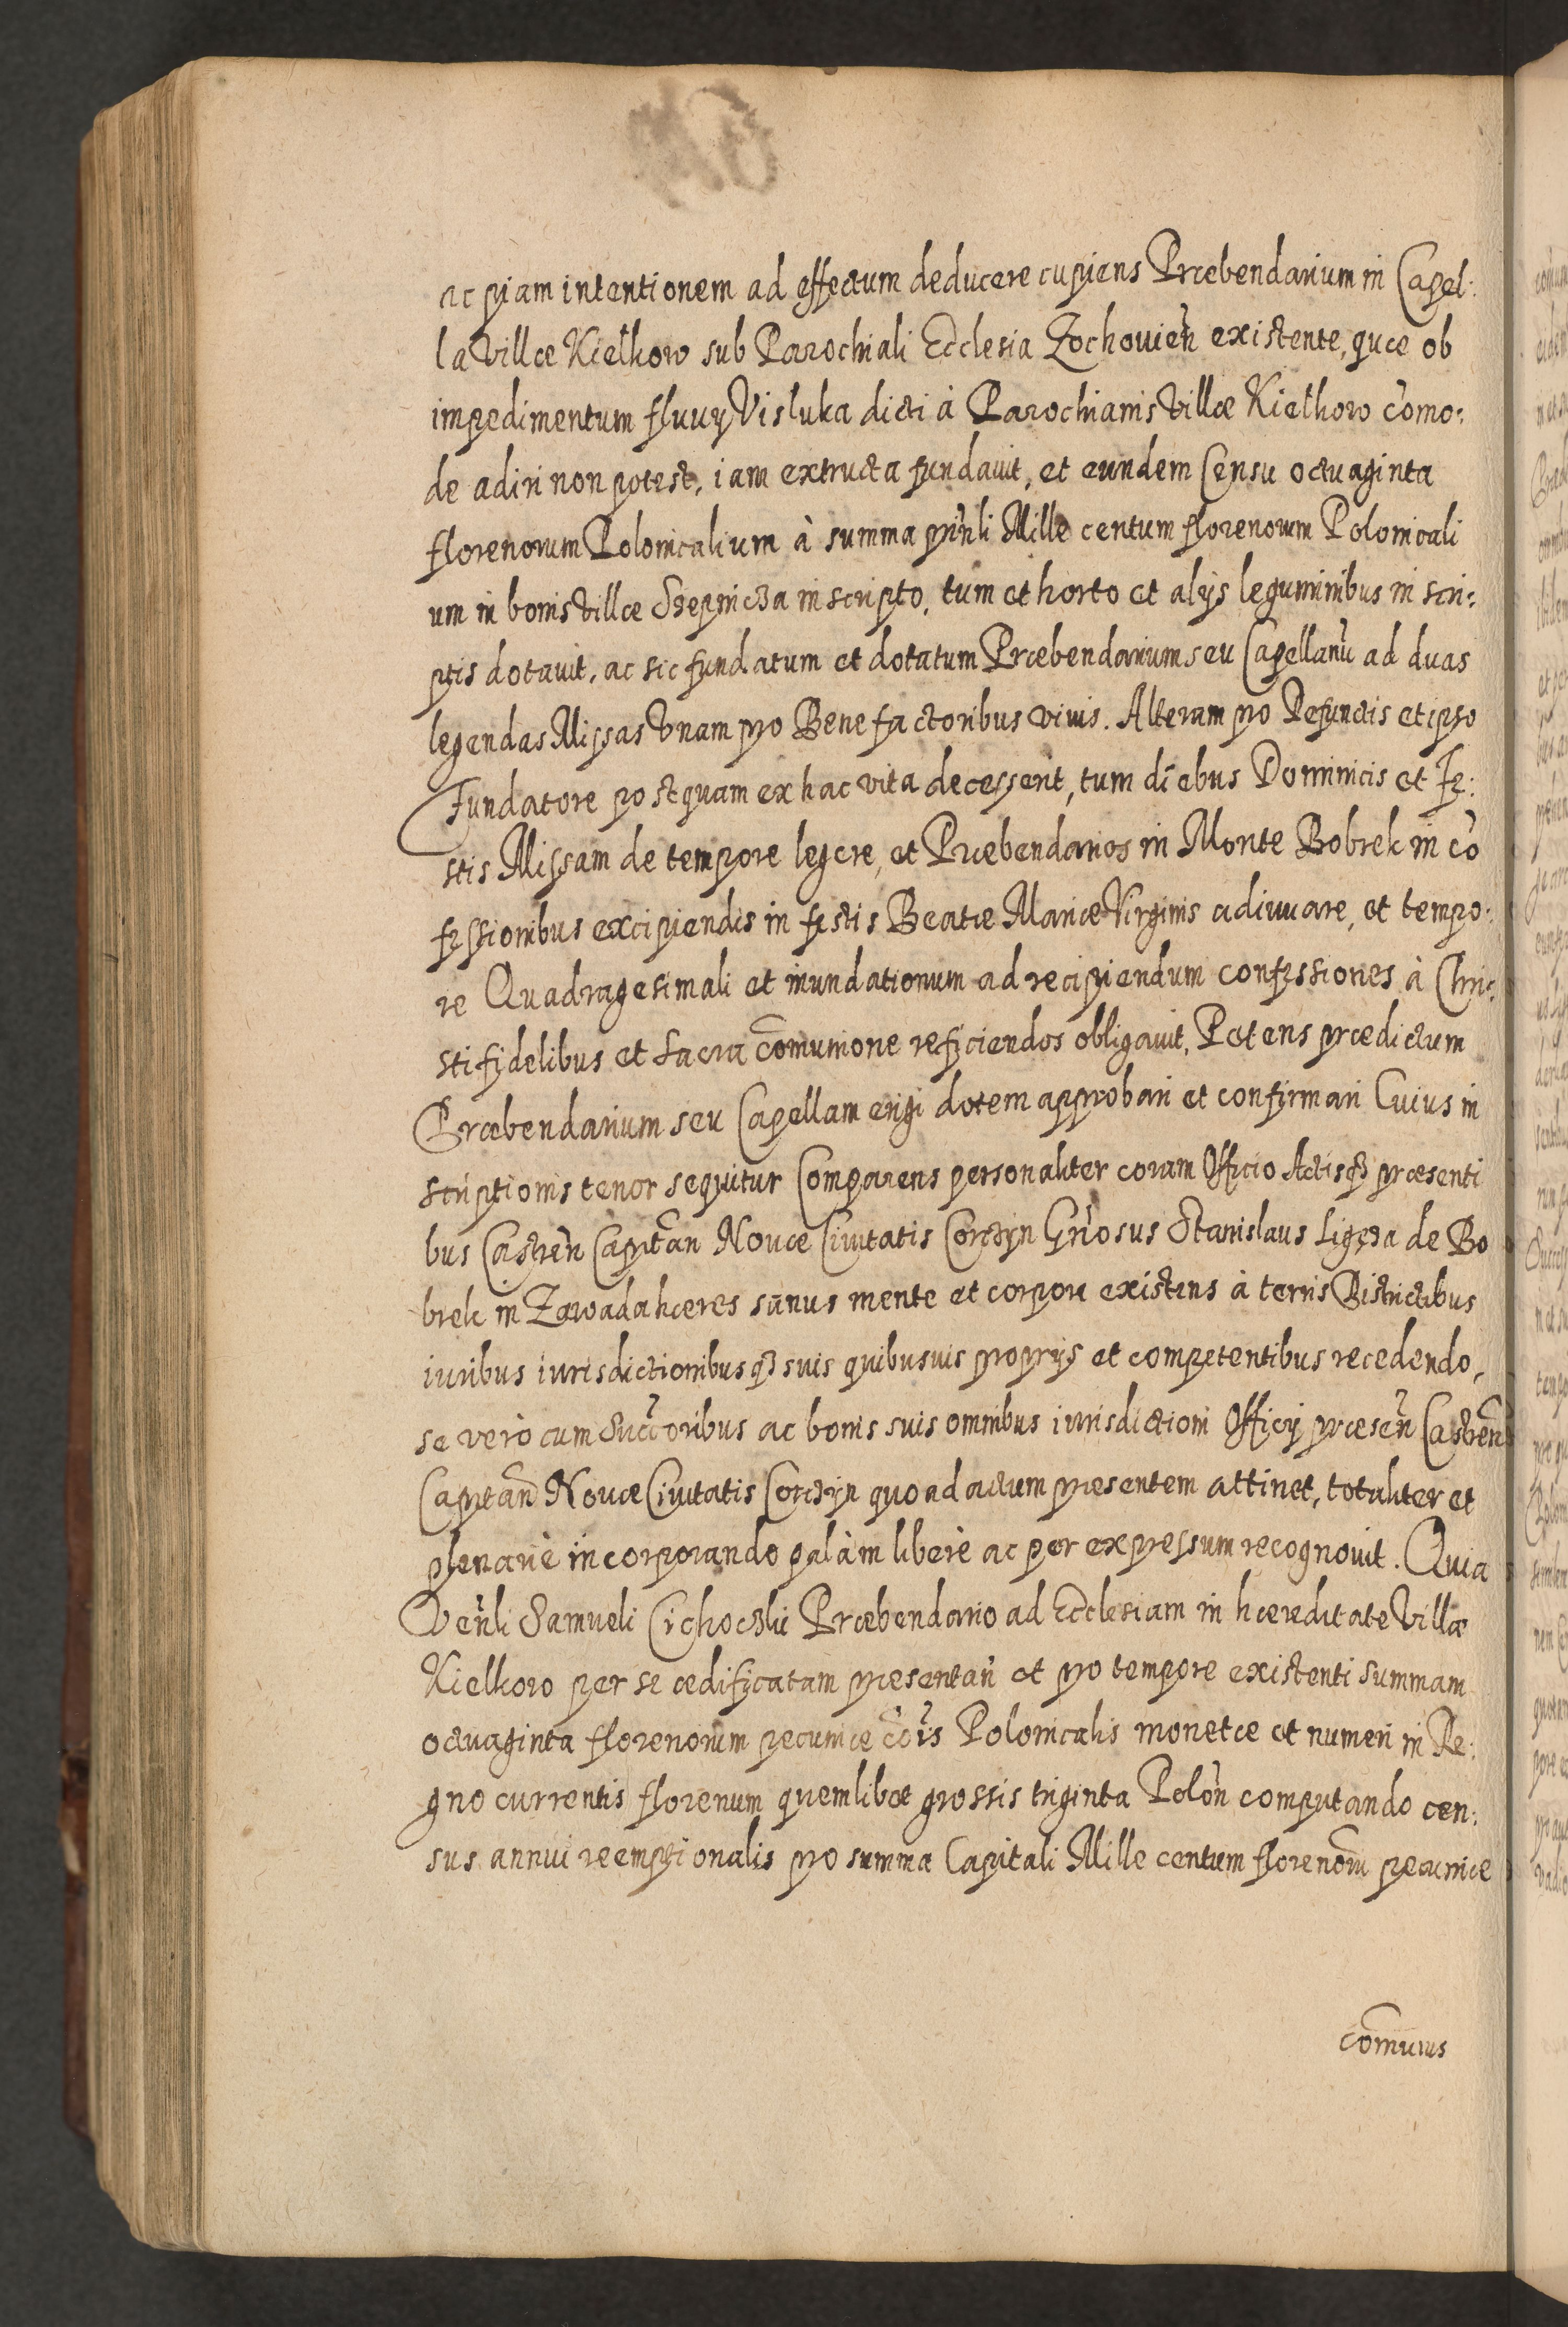 ac piam intentionem ad effectum deducere cupiens Præbendarium in Capel:
la Villæ Kiełkow sub Parochiali Ecclesia Zochouień existente, quæ ob
impedimentum fluuij Visluka dicti à Parochianis Villæ Kiełkow com̃o:
de adiri non potest, iam extructa fundauit, et eundem Censu octuaginta
florenorum Polonicalium à summa prinli Mille centum florenorum Polonicali
um in bonis Villæ Szepnicza inscripto, tum et horto et alijs leguminibus in scri:
ptis dotauit, ac sic fundatum et dotatum Præbendarium seu Capellanũ ad duas
legendas Missas Vnam pro Benefactoribus viuis. Alteram pro Defunctis et ipso
Fundatore postquam ex hac vita decesserit, tum diebus Dominicis et Fe:
stis Missam de tempore legere, et Præbendarios in Monte Bobrek in cõ
fessionibus excipiendis in festis Beatæ Mariæ Virginis adiuuare, et tempo:
re Quadragesimali et inundationum ad recipiendum confessiones à Chri:
stifidelibus et sacra com̃unione reficiendos obligauit, Petens prædictum
Præbendarium seu Capellam erigi dotem approbari et confirmari Cuius in
scriptionis tenor sequitur Comparens personaliter coram Officio Actisqȝ præsenti
bus Castreñ Capitãn Nouæ Ciuitatis Corczyn Gnosus Stanislaus Ligęza de Bo
brek in Zawada hæres sanus mente et corpore existens à terris Districtibus
iuribus iurisdictionibusqȝ suis quibusuis proprijs et competentibus recedendo,
se verò cum Succ̃oribus ac bonis suis omnibus iurisdictioni Officij præseñ Castreñ
Capitañ Nouæ Ciuitatis Corczyn quo ad actum præsentem attinet, totaliter et
plenariè incorporando palàm liberè ac per expressum recognouit. Quia
Veñli Samueli Cichoczki Præbendario ad Ecclesiam in hæreditate Villæ
Kielkow per se ædificatam præsentañ et pro tempore existenti summam
octuaginta florenorum pecuniæ cõis Polonicalis monetæ et numeri in Re:
gno currentis florenum quemlibet grossis triginta Poloñ computando cen:
sus annui reemptionalis pro summa Capitali Mille centum florenorũ pecuniæ
com̃unis